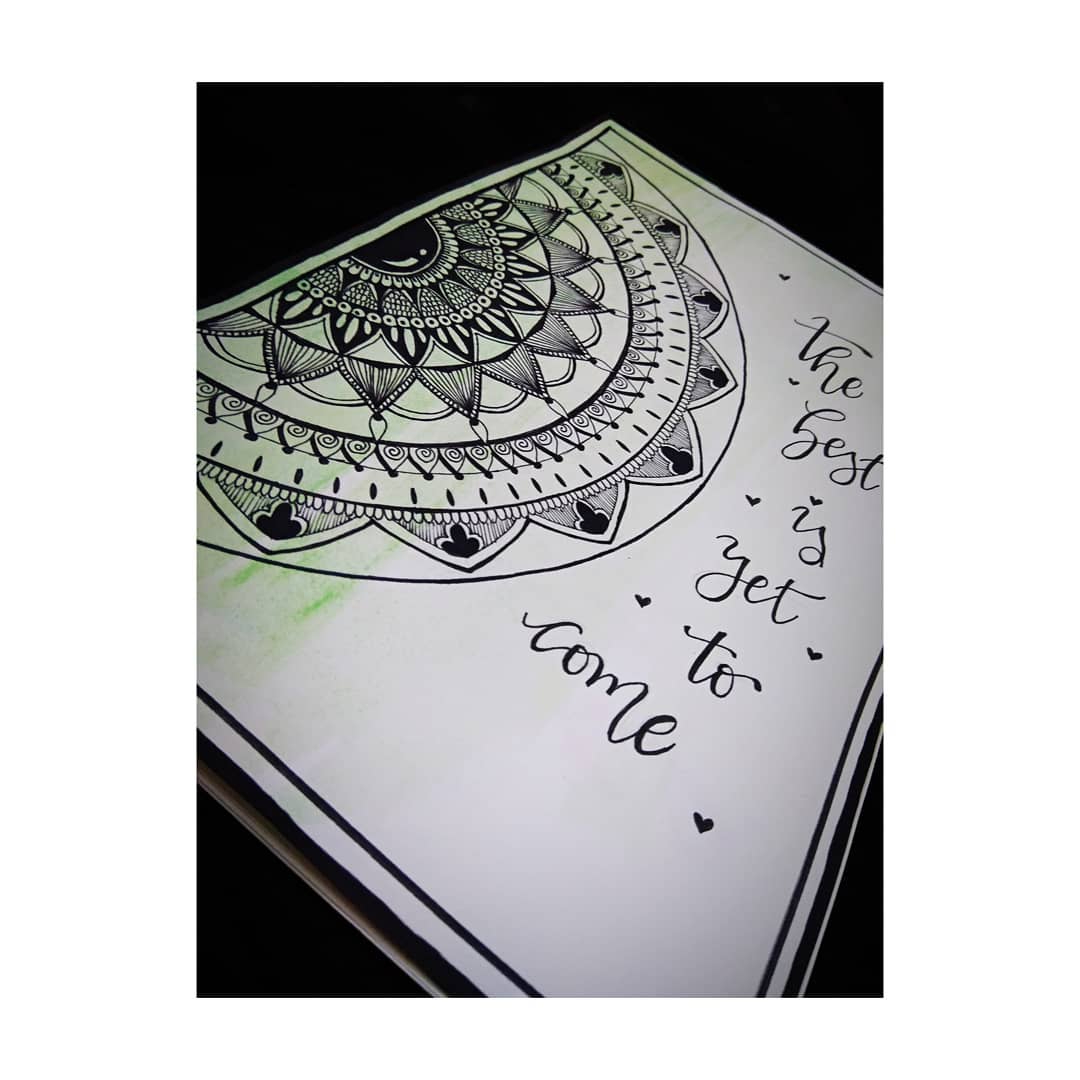 the
best
is
yet
to
come